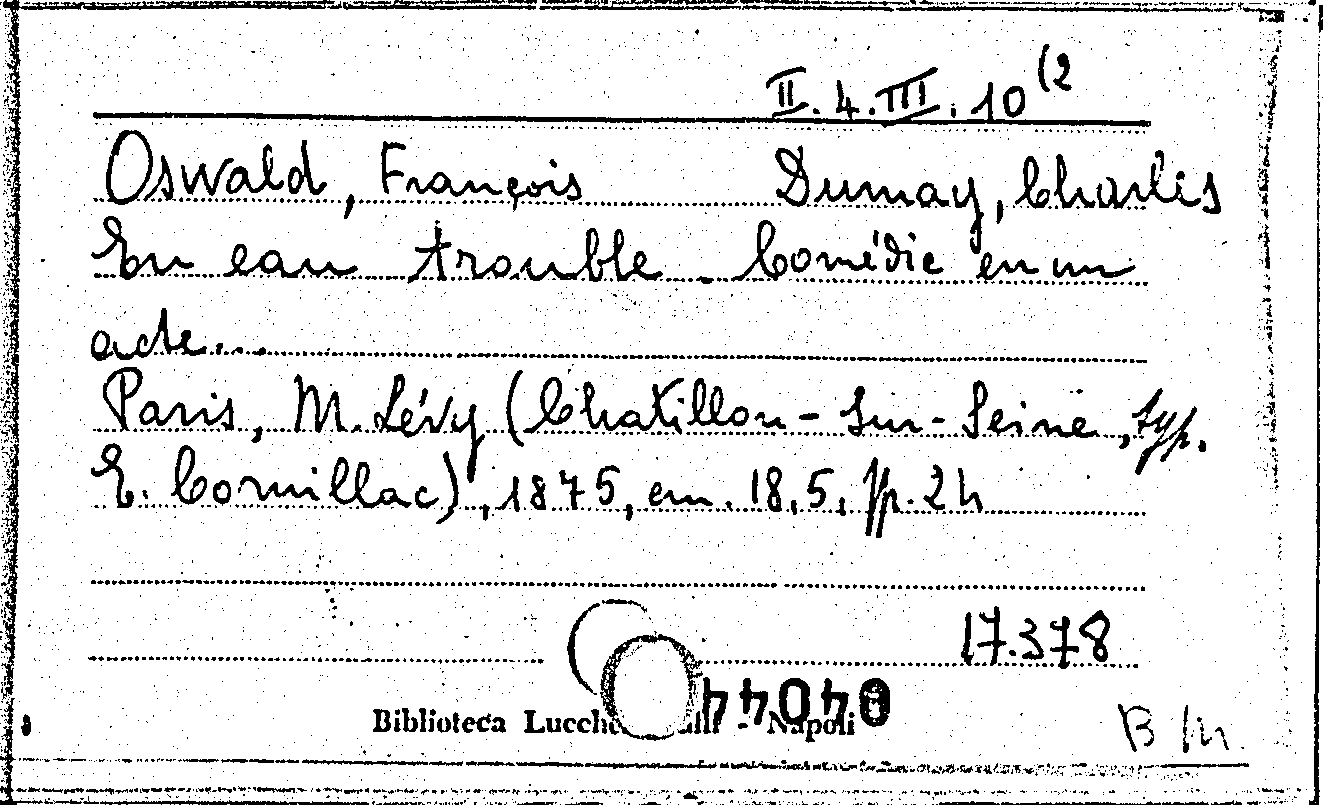 II.4.III.10(2
Oswald, François Dumay, Charles
En eau trouble. Comédie en un
acte...
Paris, M. Lévy (Chatillon-sur-Seine, typ.
E. Cornillac), 1875, cm. 18,5, pp. 24
17.378
44040
Biblioteca Lucche - Napoli
B